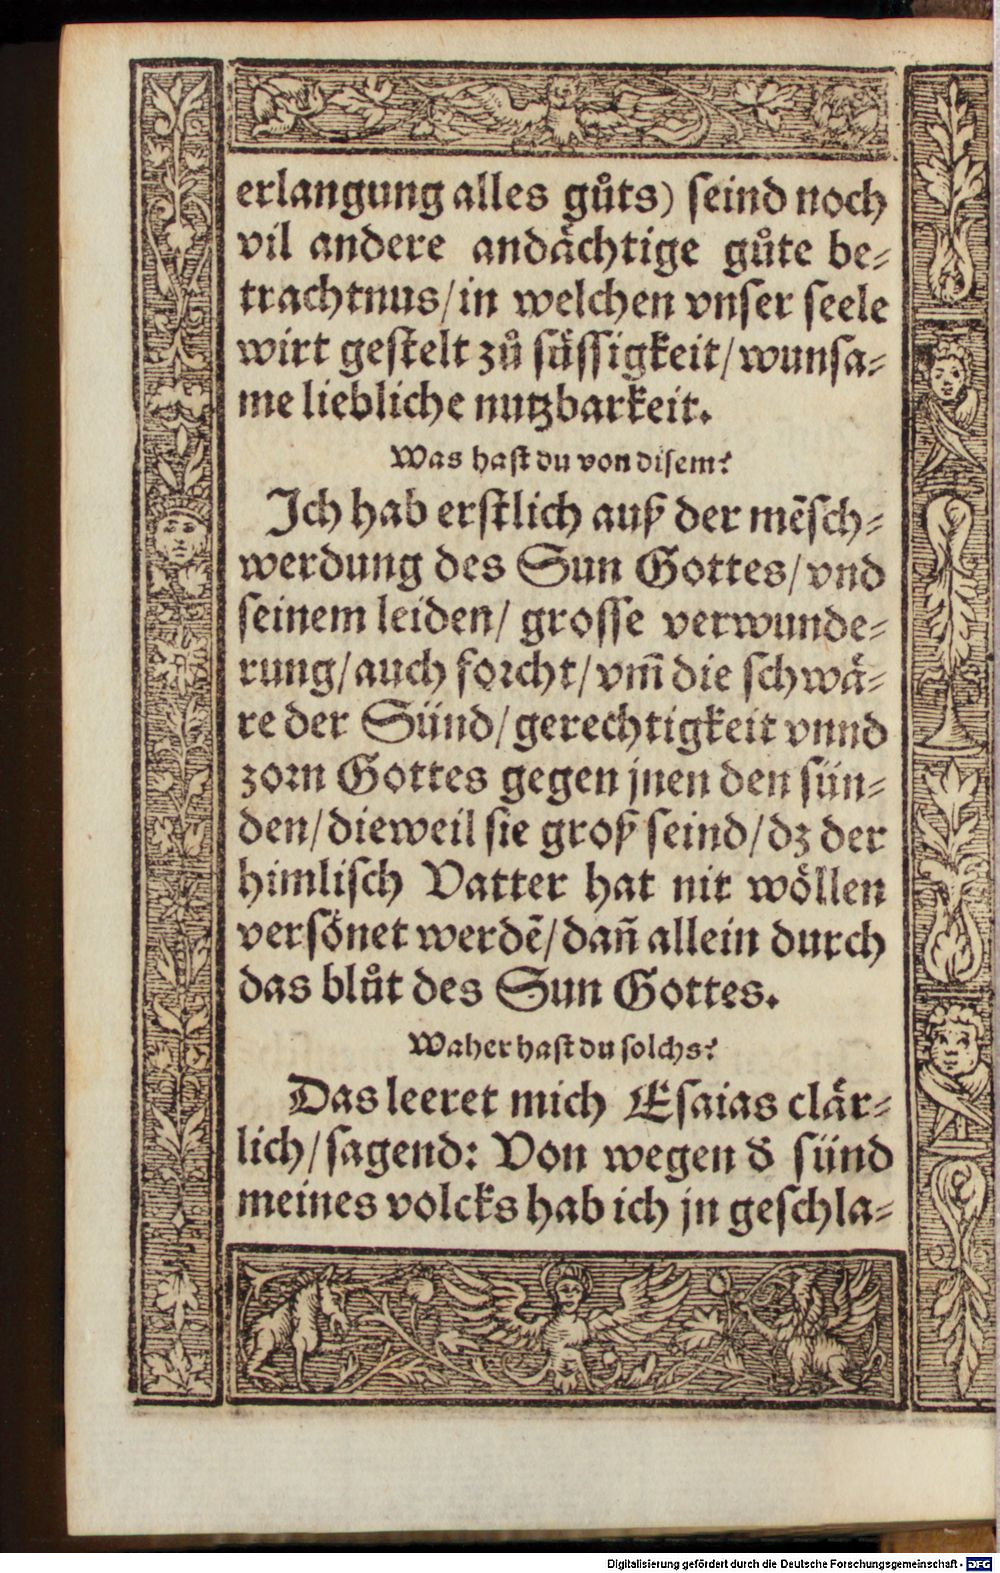 erlangung alles gůts) seind noch
vil andere andächtige gůte be⸗
trachtnus/in welchen vnser seele
wirt gestelt zů sässigkeit/wunsa⸗
me liebliche nutzbarkeit.
Was hast du von disem?
Ich hab erstlich auß der mẽsch⸗
werdung des Sun Gottes/vnd
seinem leiden/ grosse verwunde⸗
rung/auch forcht/vm̃ die schwä⸗
re der Sünd/gerechtigkeit vnnd
zorn Gottes gegen jnen den sün⸗
den/dieweil sie groß seind/dz der
himlisch Vatter hat nit wöllen
versönet werdẽ/dañ allein durch
das blůt des Sun Gottes.
Waher hast du solchs?
Das leeret mich Esaias clär⸗
lich/sagend: Von wegen d̄ sünd
meines volcks hab ich jn geschla⸗
Digitalisierung gefördert durch die Deutsche Forschungsgemeinschaft - DFG